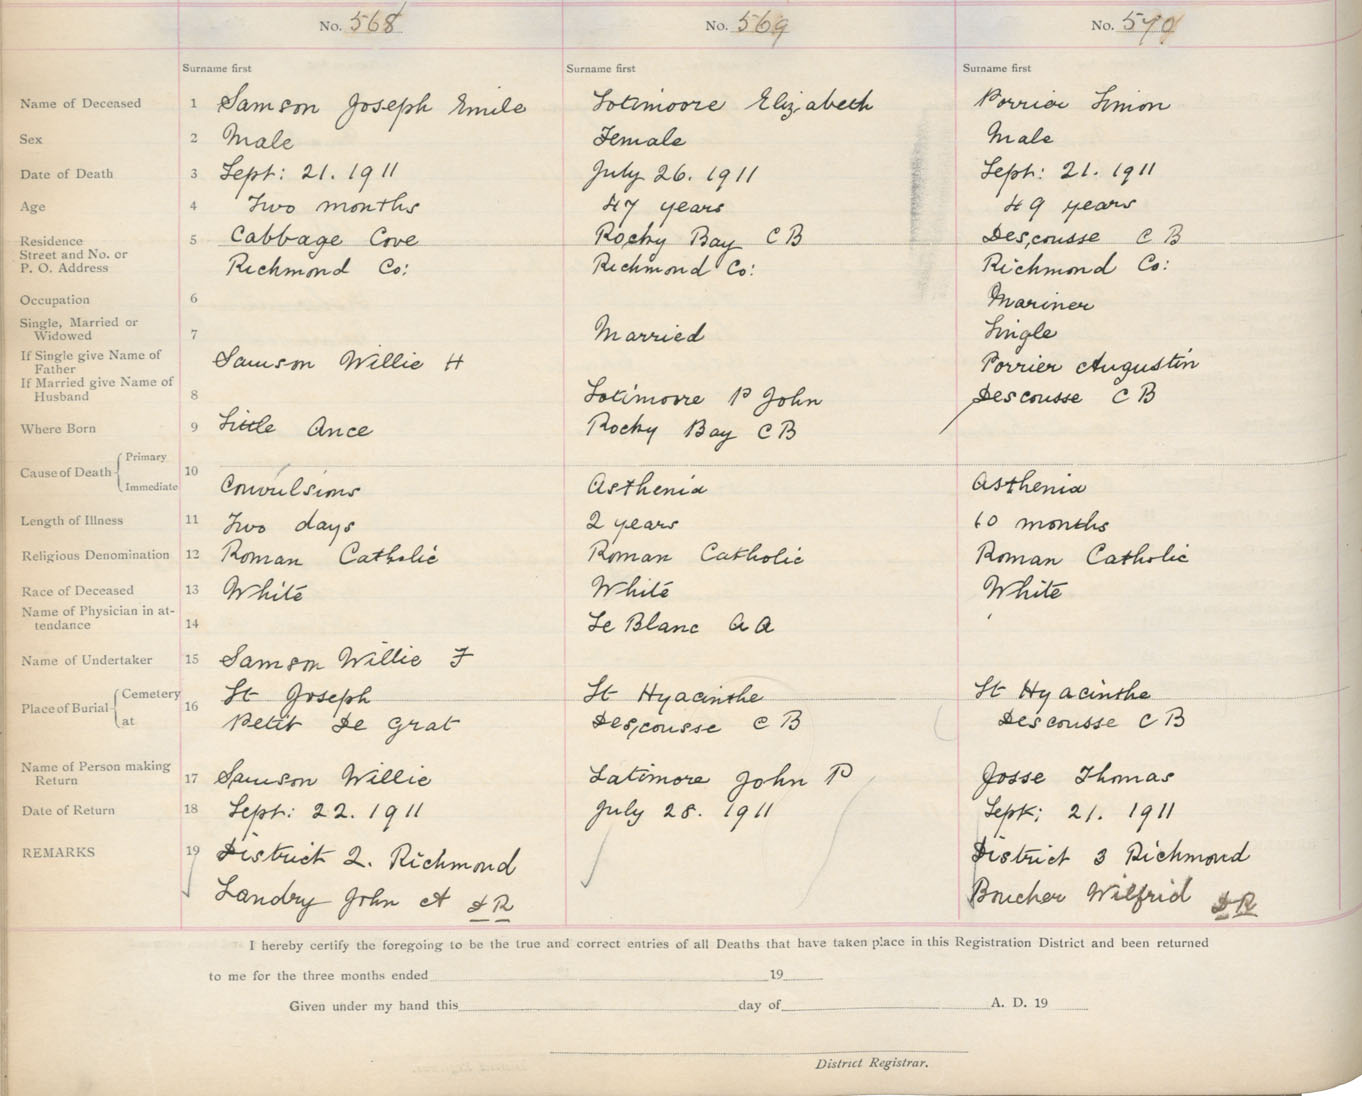 No. 568 No. 569 No. 570
Surname first Surname first Surname first
Name of Deceased 1 Samson Joseph Emile Lotimoore Elizabeth Porrier Simon
Sex 2 Male Female Male
Date of Death 3 Sept: 21. 1911 July 26. 1911 Sept: 21. 1911
Age 4 Two months 47 years 49 years
Residence 5 Cabbage Cove Rocky Bay C B Descousse C B
Street and No. or
P. O. Address Richmond Co: Richmond Co: Richmond Co:
Occupation 6 Mariner
Single, Married or
Widowed 7 Married Single
If Single give Name of
Father Samson Willie H Porrier Augustin
If Married give Name of
Husband 8 Lotimoore P John Descousse C B
Where Born 9 Little Ance Rocky Bay C B
Cause of Death Primary
10
Immediate Convulsions Asthenia Asthenia
Length of Illness 11 Two days 2 years 10 months
Religious Denomination 12 Roman Catholic Roman Catholic Roman Catholic
Race of Deceased 13 White White White
Name of Physician in at-
tendance 14 Le Blanc A A
Name of Undertaker 15 Samson Willie F
Place of Burial Cemetery 16 St Joseph St Hyacinthe St Hyacinthe
at Petit De Grat Descousse C B Descousse C B
Name of Person making
Return 17 Samson Willie Latimore John P Josse Thomas
Date of Return 18 Sept: 22. 1911 July 28. 1911 Sept: 21. 1911
REMARKS 19 District 2. Richmond District 3 Richmond
Landry John A D R Boucher Wilfrid D R
I hereby certify the foregoing to be the true and correct entries of all Deaths that have taken place in this Registration District and been returned
to me for the three months ended 19
Given under my hand this day of A. D. 19
District Registrar.